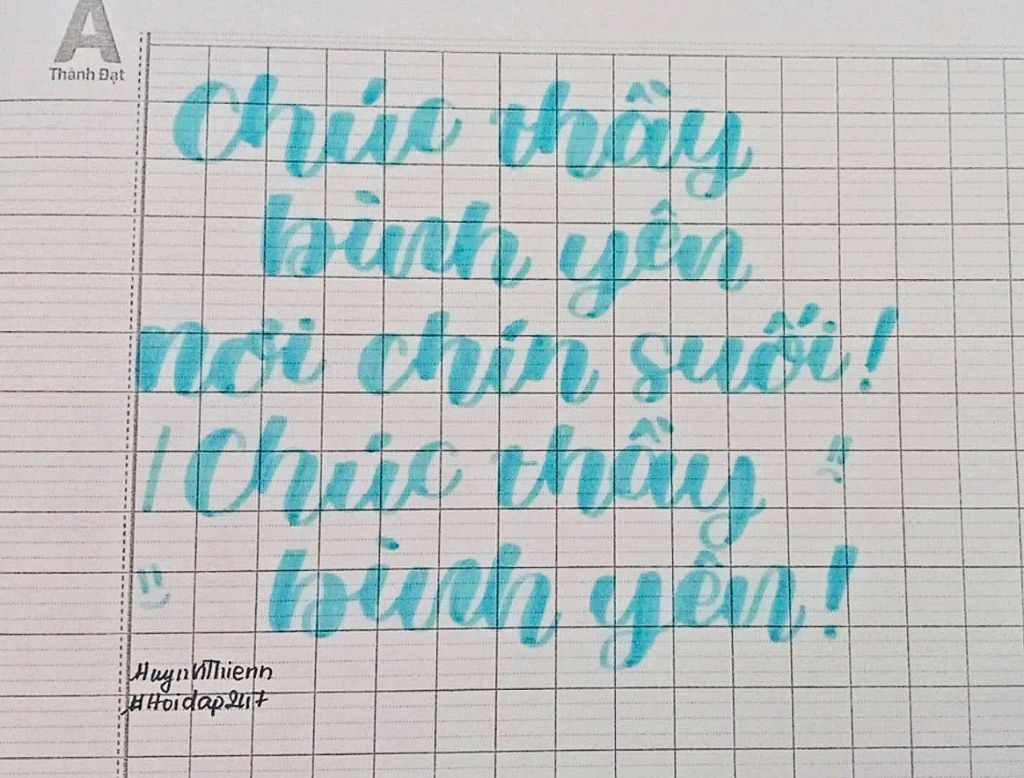 A
Thành Đạt
Chúc thầy
bình yên
nơi chín suối!
Chúc thầy
bình yên!
#HuynhThienn
#Hoidap247